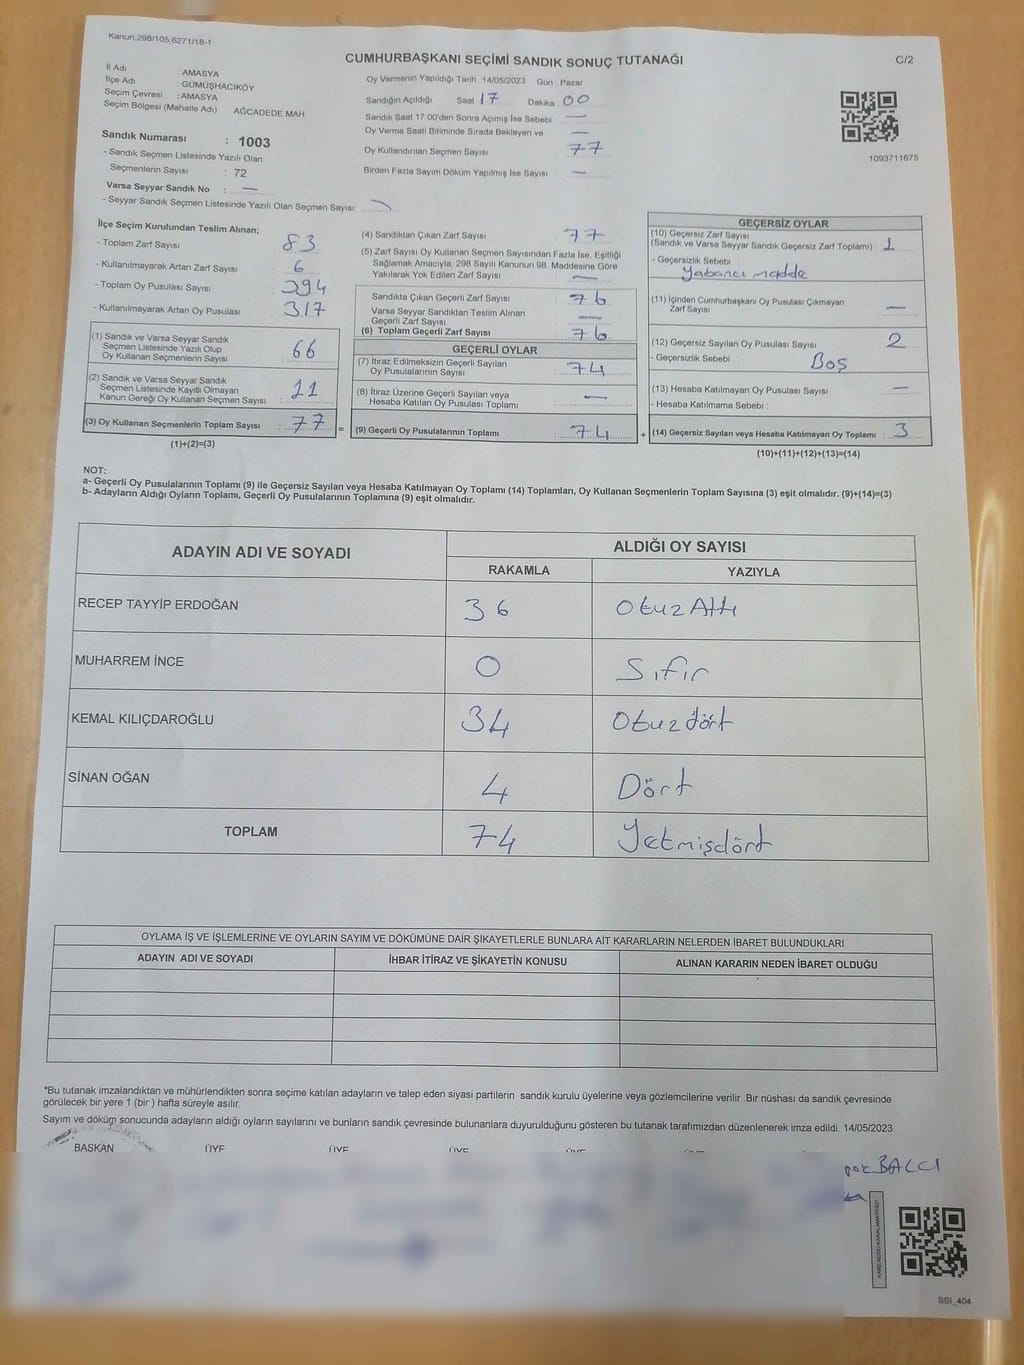 Kanun,298/105,6271/18-1
CUMHURBAŞKANI SEÇİMİ SANDIK SONUÇ TUTANAĞI
C/2
İl Adı AMASYA
İlçe Adı : GÜMÜŞHACIKÖY
Seçim Çevresi : AMASYA
Seçim Bölgesi (Mahalle Adı) AĞCADEDE MAH
Sandık Numarası : 1003
- Sandık Seçmen Listesinde Yazılı Olan
Seçmenlerin Sayısı : 72
Varsa Seyyar Sandık No : —
- Seyyar Sandık Seçmen Listesinde Yazılı Olan Seçmen Sayısı: —
Oy Vermenin Yapıldığı Tarih 14/05/2023 Gün : Pazar
Sandığın Açıldığı Saat 17 Dakika 00
Sandık Saat 17.00'den Sonra Açımış İse Sebebi : —
Oy Verme Saati Bitiminde Sırada Bekleyen ve —
Oy Kullandırılan Seçmen Sayısı 77
Birden Fazla Sayım Döküm Yapılmış İse Sayısı : —
1093711675
İlçe Seçim Kurulundan Teslim Alınan;
- Toplam Zarf Sayısı : 83
- Kullanılmayarak Artan Zarf Sayısı : 6
- Toplam Oy Pusulası Sayısı : 394
- Kullanılmayarak Artan Oy Pusulası : 317
(1) Sandık ve Varsa Seyyar Sandık
Seçmen Listesinde Yazılı Olup
Oy Kullanan Seçmenlerin Sayısı : 66
(2) Sandık ve Varsa Seyyar Sandık
Seçmen Listesinde Kayıtlı Olmayan
Kanun Gereği Oy Kullanan Seçmen Sayısı : 11
(3) Oy Kullanan Seçmenlerin Toplam Sayısı : 77 =
(1)+(2)=(3)
(4) Sandıktan Çıkan Zarf Sayısı : 77
(5) Zarf Sayısı Oy Kullanan Seçmen Sayısından Fazla İse, Eşitliği
Sağlamak Amacıyla, 298 Sayılı Kanunun 98. Maddesine Göre
Yakılarak Yok Edilen Zarf Sayısı : —
Sandıkta Çıkan Geçerli Zarf Sayısı : 76
Varsa Seyyar Sandıktan Teslim Alınan
Geçerli Zarf Sayısı : —
(6) Toplam Geçerli Zarf Sayısı : 76
GEÇERLİ OYLAR
(7) İtiraz Edilmeksizin Geçerli Sayılan
Oy Pusulalarının Sayısı : 74
(8) İtiraz Üzerine Geçerli Sayılan veya
Hesaba Katılan Oy Pusulası Toplamı : —
(9) Geçerli Oy Pusulalarının Toplamı : 74 +
GEÇERSİZ OYLAR
(10) Geçersiz Zarf Sayısı
(Sandık ve Varsa Seyyar Sandık Geçersiz Zarf Toplamı) : 1
- Geçersizlik Sebebi :
Yabancı madde
(11) İçinden Cumhurbaşkanı Oy Pusulası Çıkmayan
Zarf Sayısı : —
(12) Geçersiz Sayılan Oy Pusulası Sayısı : 2
- Geçersizlik Sebebi : Boş
(13) Hesaba Katılmayan Oy Pusulası Sayısı : —
- Hesaba Katılmama Sebebi :
(14) Geçersiz Sayılan veya Hesaba Katılmayan Oy Toplamı : 3
(10)+(11)+(12)+(13)=(14)
NOT:
a- Geçerli Oy Pusulalarının Toplamı (9) ile Geçersiz Sayılan veya Hesaba Katılmayan Oy Toplamı (14) Toplamları, Oy Kullanan Seçmenlerin Toplam Sayısına (3) eşit olmalıdır. (9)+(14)=(3)
b- Adayların Aldığı Oyların Toplamı, Geçerli Oy Pusulalarının Toplamına (9) eşit olmalıdır.
ADAYIN ADI VE SOYADI ALDIĞI OY SAYISI
RAKAMLA YAZIYLA
RECEP TAYYİP ERDOĞAN 36 Otuz Altı
MUHARREM İNCE 0 Sıfır
KEMAL KILIÇDAROĞLU 34 Otuz dört
SİNAN OĞAN 4 Dört
TOPLAM 74 Yetmişdört
OYLAMA İŞ VE İŞLEMLERİNE VE OYLARIN SAYIM VE DÖKÜMÜNE DAİR ŞİKAYETLERLE BUNLARA AİT KARARLARIN NELERDEN İBARET BULUNDUKLARI
ADAYIN ADI VE SOYADI İHBAR İTİRAZ VE ŞİKAYETİN KONUSU ALINAN KARARIN NEDEN İBARET OLDUĞU
*Bu tutanak imzalandıktan ve mühürlendikten sonra seçime katılan adayların ve talep eden siyasi partilerin sandık kurulu üyelerine veya gözlemcilerine verilir. Bir nüshası da sandık çevresinde
görülecek bir yere 1 (bir ) hafta süreyle asılır.
Sayım ve döküm sonucunda adayların aldığı oyların sayılarını ve bunların sandık çevresinde bulunanlara duyurulduğunu gösteren bu tutanak tarafımızdan düzenlenerek imza edildi. 14/05/2023
BAŞKAN ÜYE ÜYE ÜYE
BALCI
SSI_404